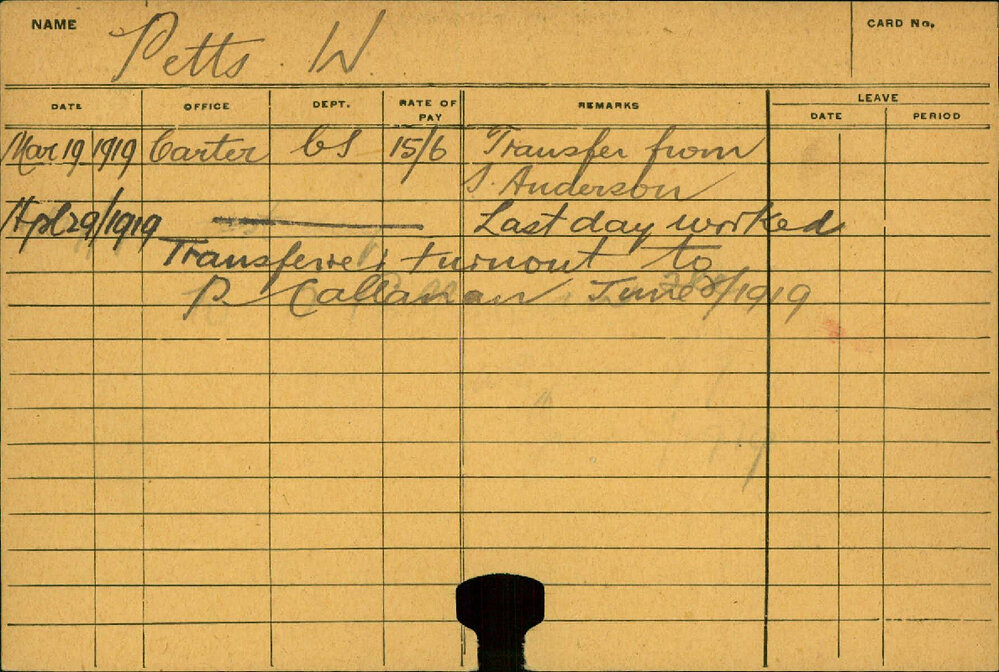 NAME Petts W. CARD No.
DATE OFFICE DEPT. RATE OF PAY REMARKS LEAVE
DATE PERIOD
Mar 19 1919 Carter CS 15/6 Transfer from
S. Anderson
Apl 29/1919 Last day worked
Transferred turnout to
P Callanan June 8/1919